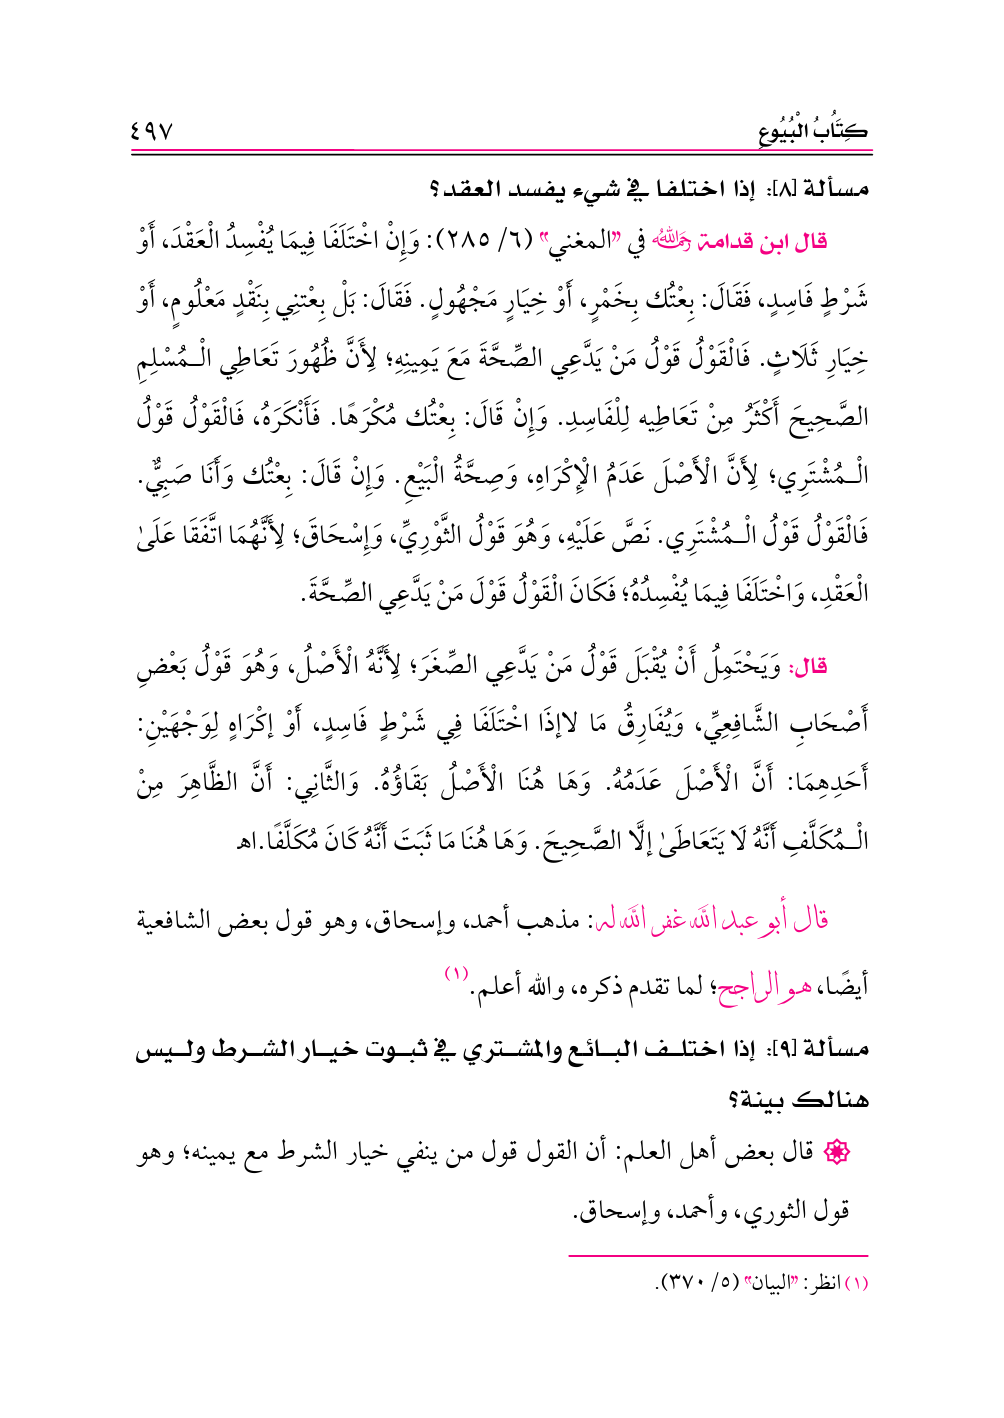 كِتَابُ الْبُيُوعِ ٤٩٧
مسألة [٨]: إذا اختلفا في شيء يفسد العقد؟
قال ابن قدامة رَحِمَهُ اللهُ في "المغني" (٦/ ٢٨٥): وَإِنْ اخْتَلَفَا فِيمَا يُفْسِدُ الْعَقْدَ، أَوْ
شَرْطٍ فَاسِدٍ، فَقَالَ: بِعْتُك بِخَمْرٍ، أَوْ خِيَارٍ مَجْهُولٍ. فَقَالَ: بَلْ بِعْتنِي بِنَقْدٍ مَعْلُومٍ، أَوْ
خِيَارِ ثَلَاثٍ. فَالْقَوْلُ قَوْلُ مَنْ يَدَّعِي الصِّحَّةَ مَعَ يَمِينِهِ؛ لِأَنَّ ظُهُورَ تَعَاطِي الْـمُسْلِمِ
الصَّحِيحَ أَكْثَرُ مِنْ تَعَاطِيه لِلْفَاسِدِ. وَإِنْ قَالَ: بِعْتُك مُكْرَهًا. فَأَنْكَرَهُ، فَالْقَوْلُ قَوْلُ
الْـمُشْتَرِي؛ لِأَنَّ الْأَصْلَ عَدَمُ الْإِكْرَاهِ، وَصِحَّةُ الْبَيْعِ. وَإِنْ قَالَ: بِعْتُك وَأَنَا صَبِيٌّ.
فَالْقَوْلُ قَوْلُ الْـمُشْتَرِي. نَصَّ عَلَيْهِ، وَهُوَ قَوْلُ الثَّوْرِيِّ، وَإِسْحَاقَ؛ لِأَنَّهُمَا اتَّفَقَا عَلَىٰ
الْعَقْدِ، وَاخْتَلَفَا فِيمَا يُفْسِدُهُ؛ فَكَانَ الْقَوْلُ قَوْلَ مَنْ يَدَّعِي الصِّحَّةَ.
قال: وَيَحْتَمِلُ أَنْ يُقْبَلَ قَوْلُ مَنْ يَدَّعِي الصِّغَرَ؛ لِأَنَّهُ الْأَصْلُ، وَهُوَ قَوْلُ بَعْضِ
أَصْحَابِ الشَّافِعِيِّ، وَيُفَارِقُ مَا لاإذَا اخْتَلَفَا فِي شَرْطٍ فَاسِدٍ، أَوْ إكْرَاهٍ لِوَجْهَيْنِ:
أَحَدِهِمَا: أَنَّ الْأَصْلَ عَدَمُهُ. وَهَا هُنَا الْأَصْلُ بَقَاؤُهُ. وَالثَّانِي: أَنَّ الظَّاهِرَ مِنْ
الْـمُكَلَّفِ أَنَّهُ لَا يَتَعَاطَىٰ إلَّا الصَّحِيحَ. وَهَا هُنَا مَا ثَبَتَ أَنَّهُ كَانَ مُكَلَّفًا.اهـ
قال أبو عبد الله غفر الله له: مذهب أحمد، وإسحاق، وهو قول بعض الشافعية
أيضًا، هو الراجح؛ لما تقدم ذكره، والله أعلم.(١)
مسألة [٩]: إذا اختلـف البـائـع والمشـتري في ثبـوت خيـار الشـرط ولـيس
هنالك بينة؟
قال بعض أهل العلم: أن القول قول من ينفي خيار الشرط مع يمينه؛ وهو
قول الثوري، وأحمد، وإسحاق.
(١) انظر: "البيان" (٥/ ٣٧٠).